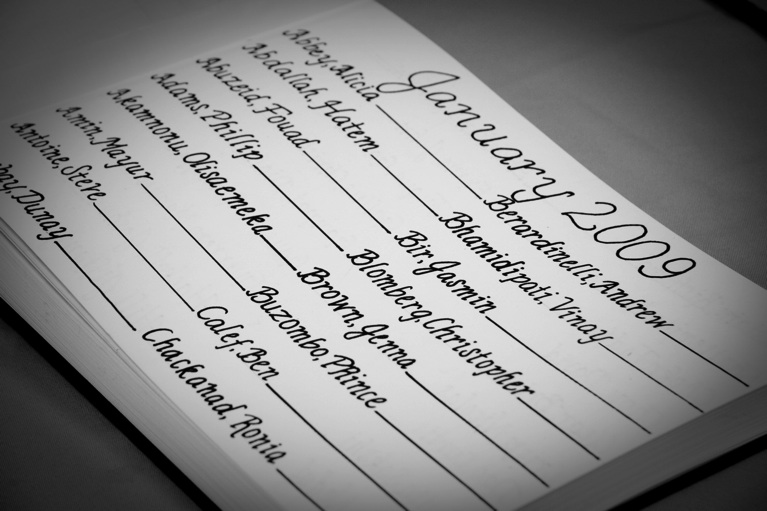 January 2009
Abbey, Alicia Berardinelli, Andrew
Abdallah, Hatem Bhamidipati, Vinay
Abuzeid, Fouad Bir, Jasmin
Adams, Phillip Blomberg, Christopher
Akamnonu, Olisaemeka Brown, Jenna
Amin, Mayur Buzombo, Prince
Antoine, Steve Calef, Ben
Dunay Chackanad, Ronia